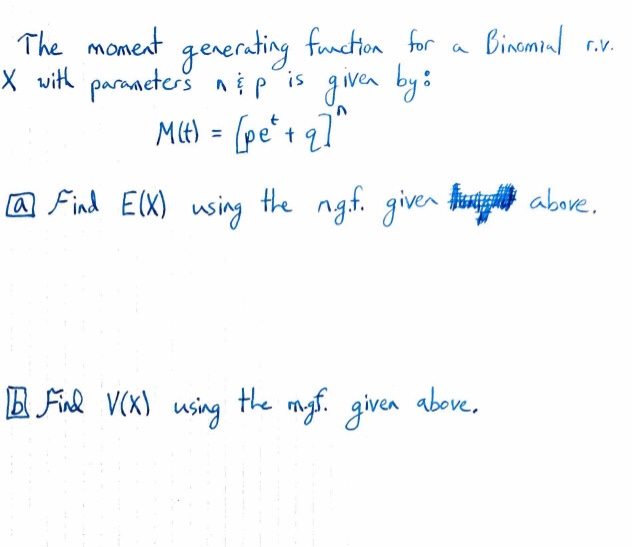 The moment generating function for a Binomial r.v.
X with parameters n & p is given by:
M(t) = [pe^t + q]^n
a Find E(X) using the m.g.f. given above.
b Find V(X) using the m.g.f. given above.